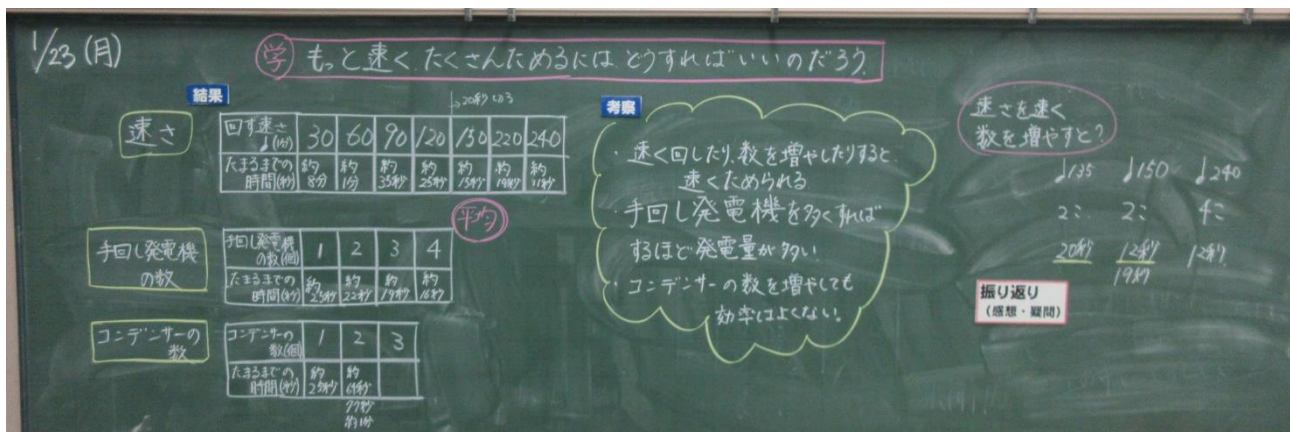 1/23(月)
学 もっと速く、たくさんためるには どうすればいいのだろう。
結果
→20秒切る
速さ
回す速さ ♩(1分) 30 60 90 120 150 220 240
たまるまでの時間(秒) 約8分 約1分 約35秒 約25秒 約15秒 約19秒 約11秒
平均
手回し発電機の数
手回し発電機の数(個) 1 2 3 4
たまるまでの時間(秒) 約25秒 約22秒 約19秒 約16秒
コンデンサーの数
コンデンサーの数(個) 1 2 3
たまるまでの時間(秒) 約25秒 約69秒
77秒
約1分
考察
・速く回したり、数を増やしたりすると、
速くためられる
・手回し発電機を多くすれば
するほど発電量が多い
・コンデンサーの数を増やしても
効率はよくない。
速さを速く
数を増やすと?
♩135 ♩150 ♩240
2こ 2こ 4こ
20秒 12秒 12秒
19秒
振り返り
(感想・疑問)